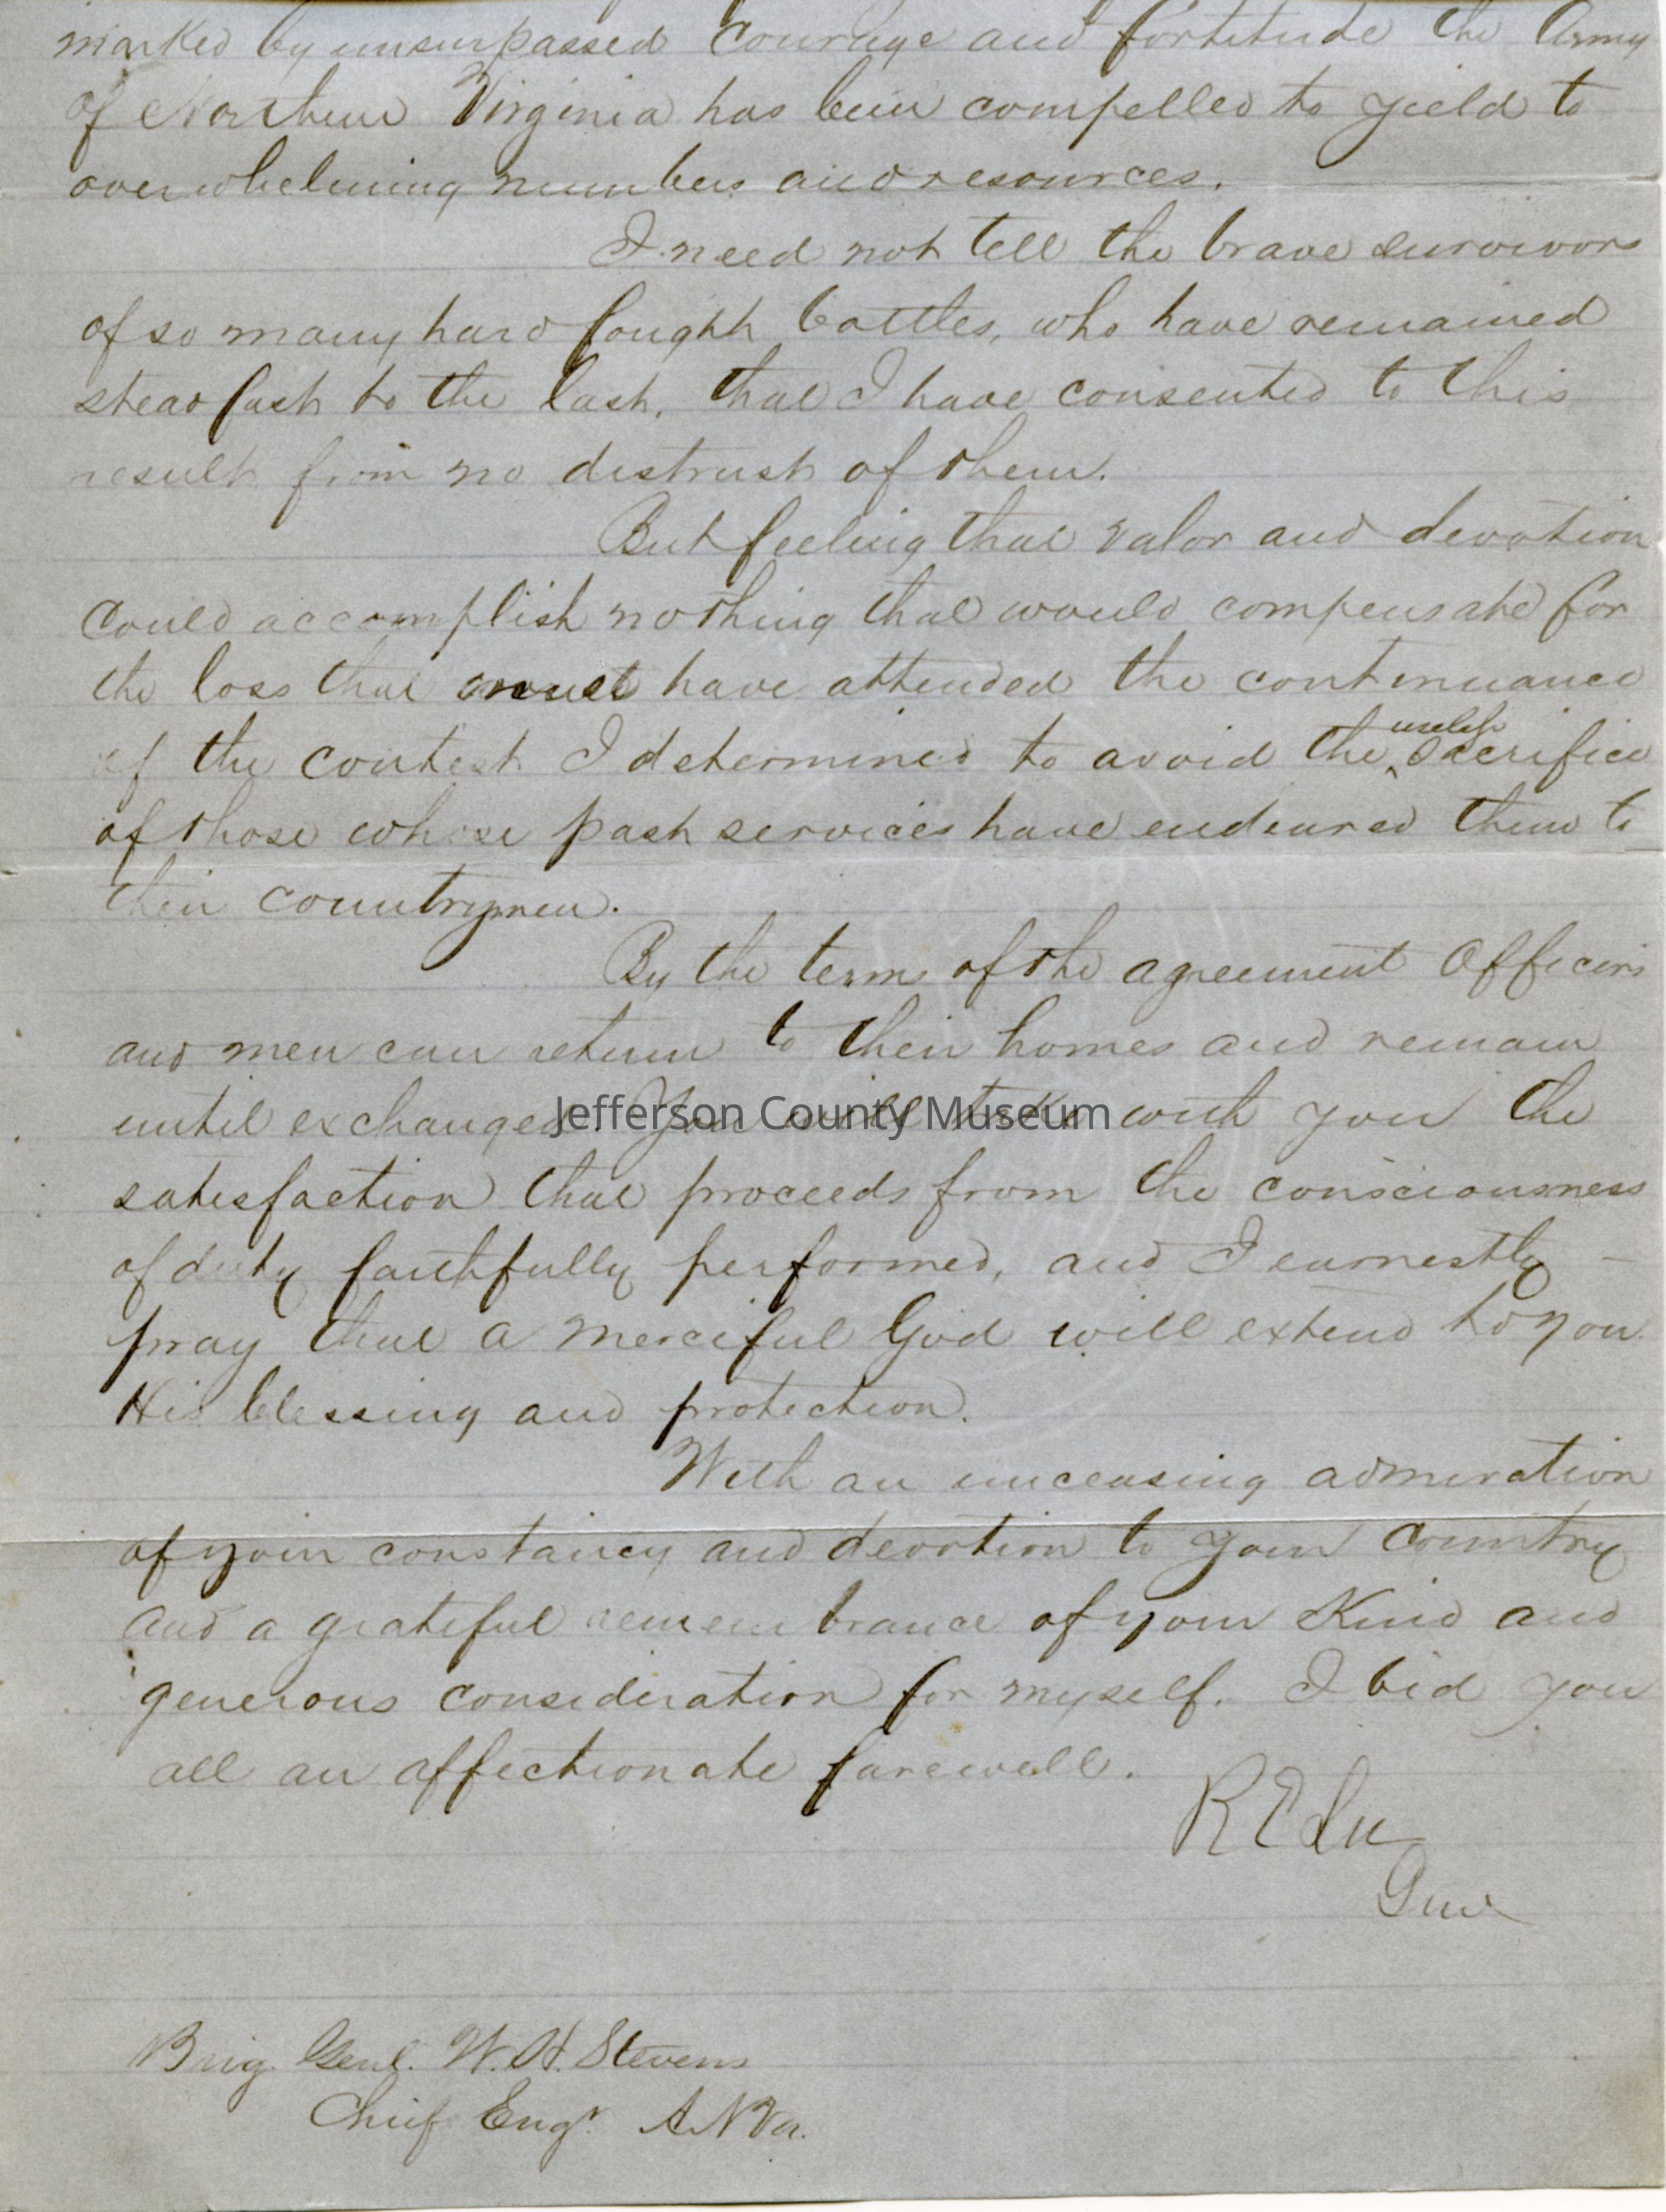 marked by unsurpassed courage and fortitude the Army
of Northern Virginia has been compelled to yield to
overwhelming numbers and resources.
I need not tell the brave survivors
of so many hard fought battles, who have remained
steadfast to the last, that I have consented to this
result from no distrust of them.
But feeling that valor and devotion
could accomplish nothing that would compensate for
the loss that must have attended the continuance
useless
of the contest I determined to avoid the ‸ sacrifice
of those whose past services have endeared them to
their countrymen.
By the terms of the agreement Officers
and men can return to their homes and remain
until exchanged. You will take with you the
Jefferson County Museum
satisfaction that proceeds from the consciousness
of duty faithfully performed, and I earnestly –
pray that a merciful God will extend to you
His blessing and protection.
With an unceasing admiration
of your constancy and devotion to your Country
and a grateful remembrance of your Kind and
generous consideration for myself. I bid you
all an affectionate farewell.
R E Lee
Genl
Brig. Genl. W. H. Stevens
Chief Engr. A N Va.